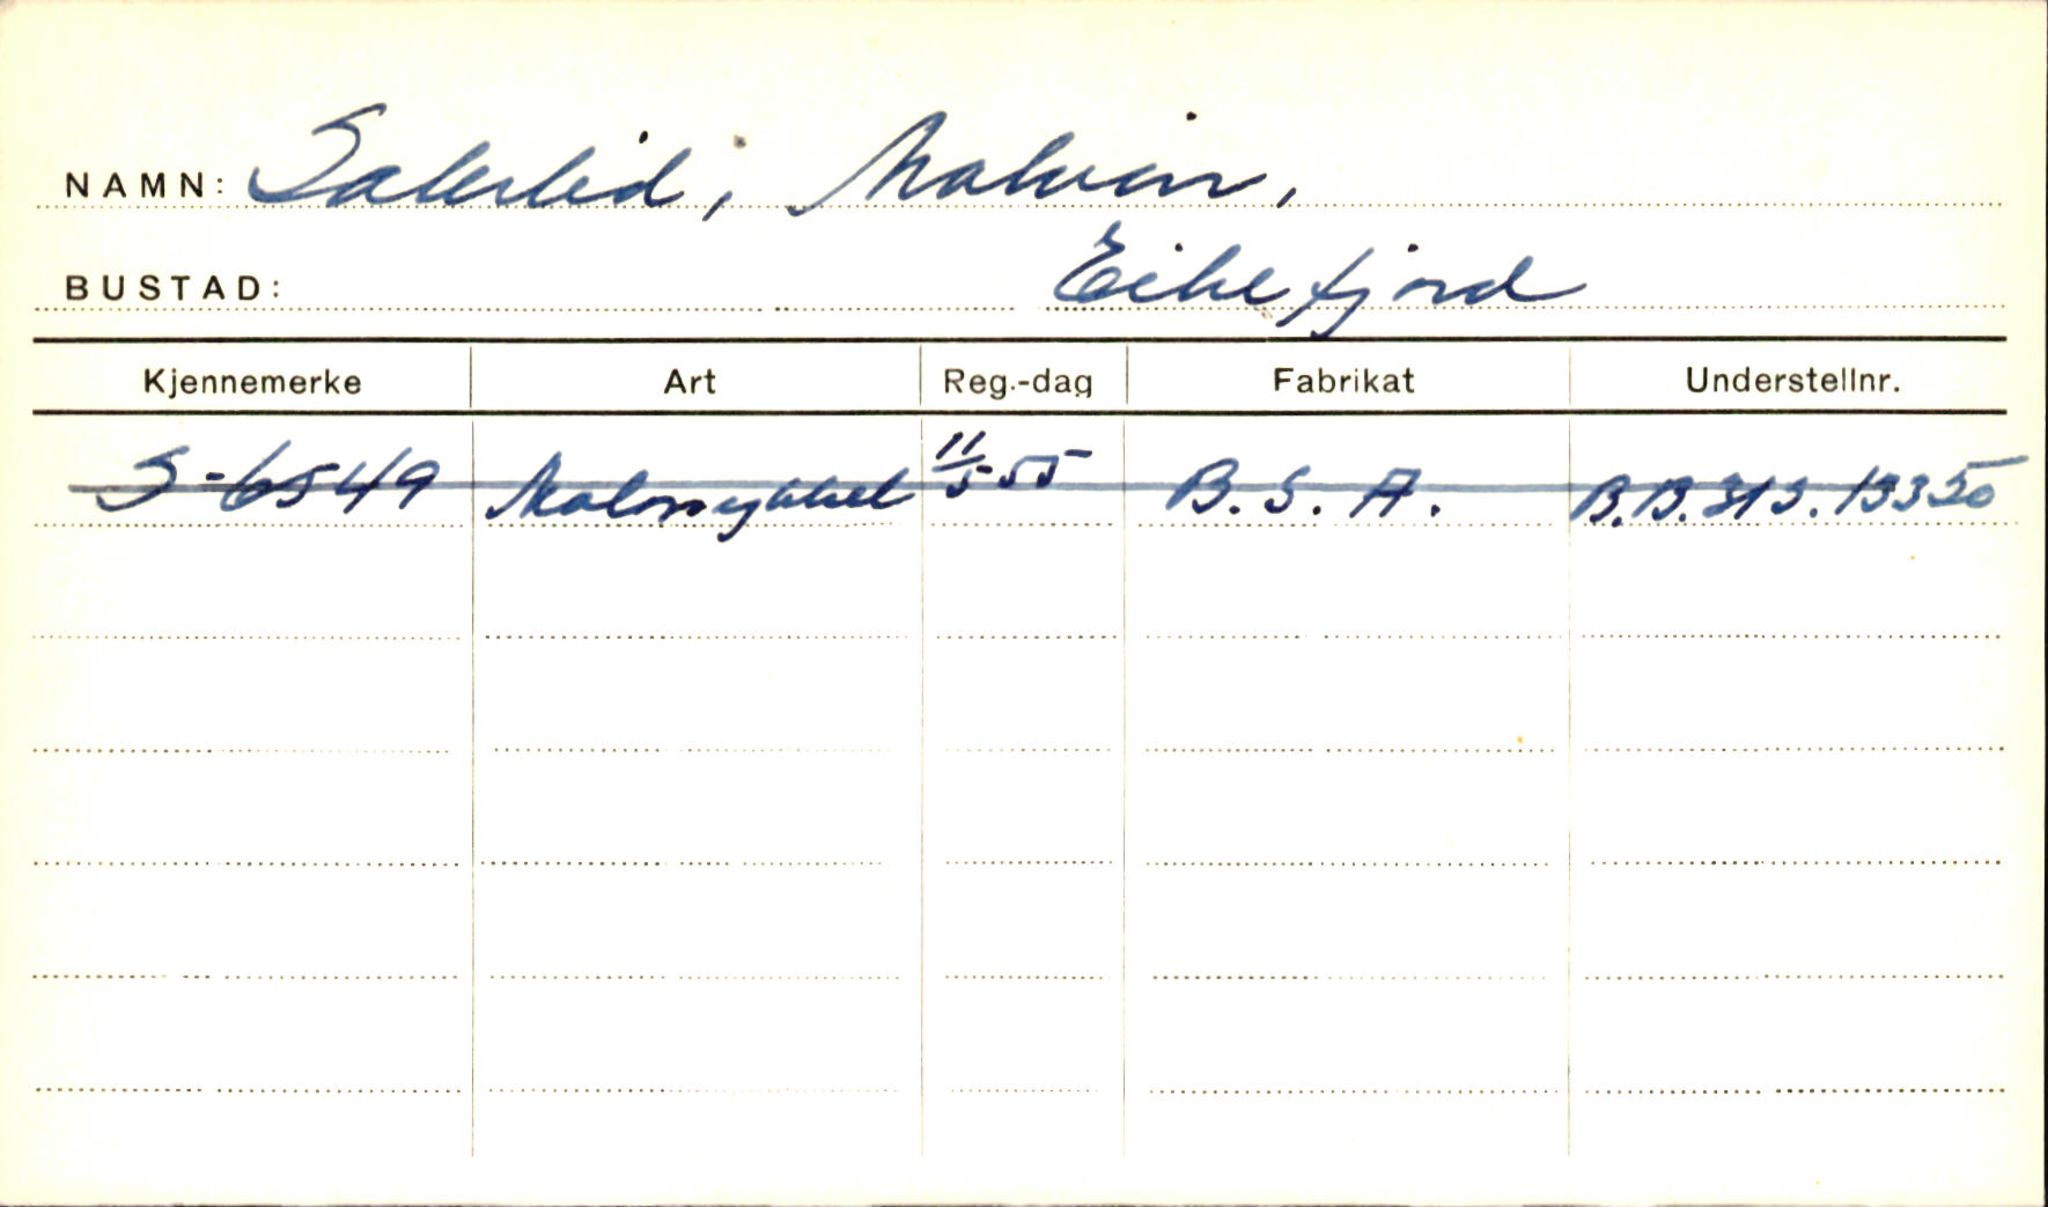 NAMN: Sælerlid, Malvin,
BUSTAD: Eikefjord
Kjennemerke Art Reg.-dag Fabrikat Understellnr.
S-6549 Motorsykkel 11/5-55 B.S.A. B.B.31S.13350